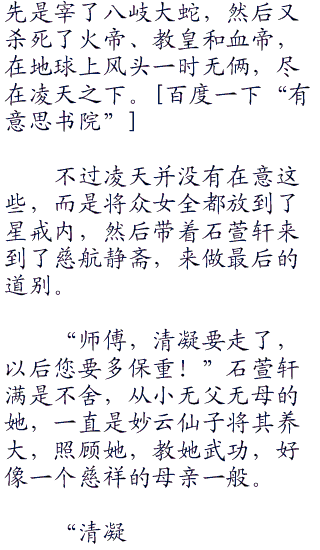 先是宰了八岐大蛇，然后又
杀死了火帝、教皇和血帝，
在地球上风头一时无俩，尽
在凌天之下。[百度一下“有
意思书院”]
不过凌天并没有在意这
些，而是将众女全都放到了
星戒内，然后带着石萱轩来
到了慈航静斋，来做最后的
道别。
“师傅，清凝要走了，
以后您要多保重！”石萱轩
满是不舍，从小无父无母的
她，一直是妙云仙子将其养
大，照顾她，教她武功，好
像一个慈祥的母亲一般。
“清凝